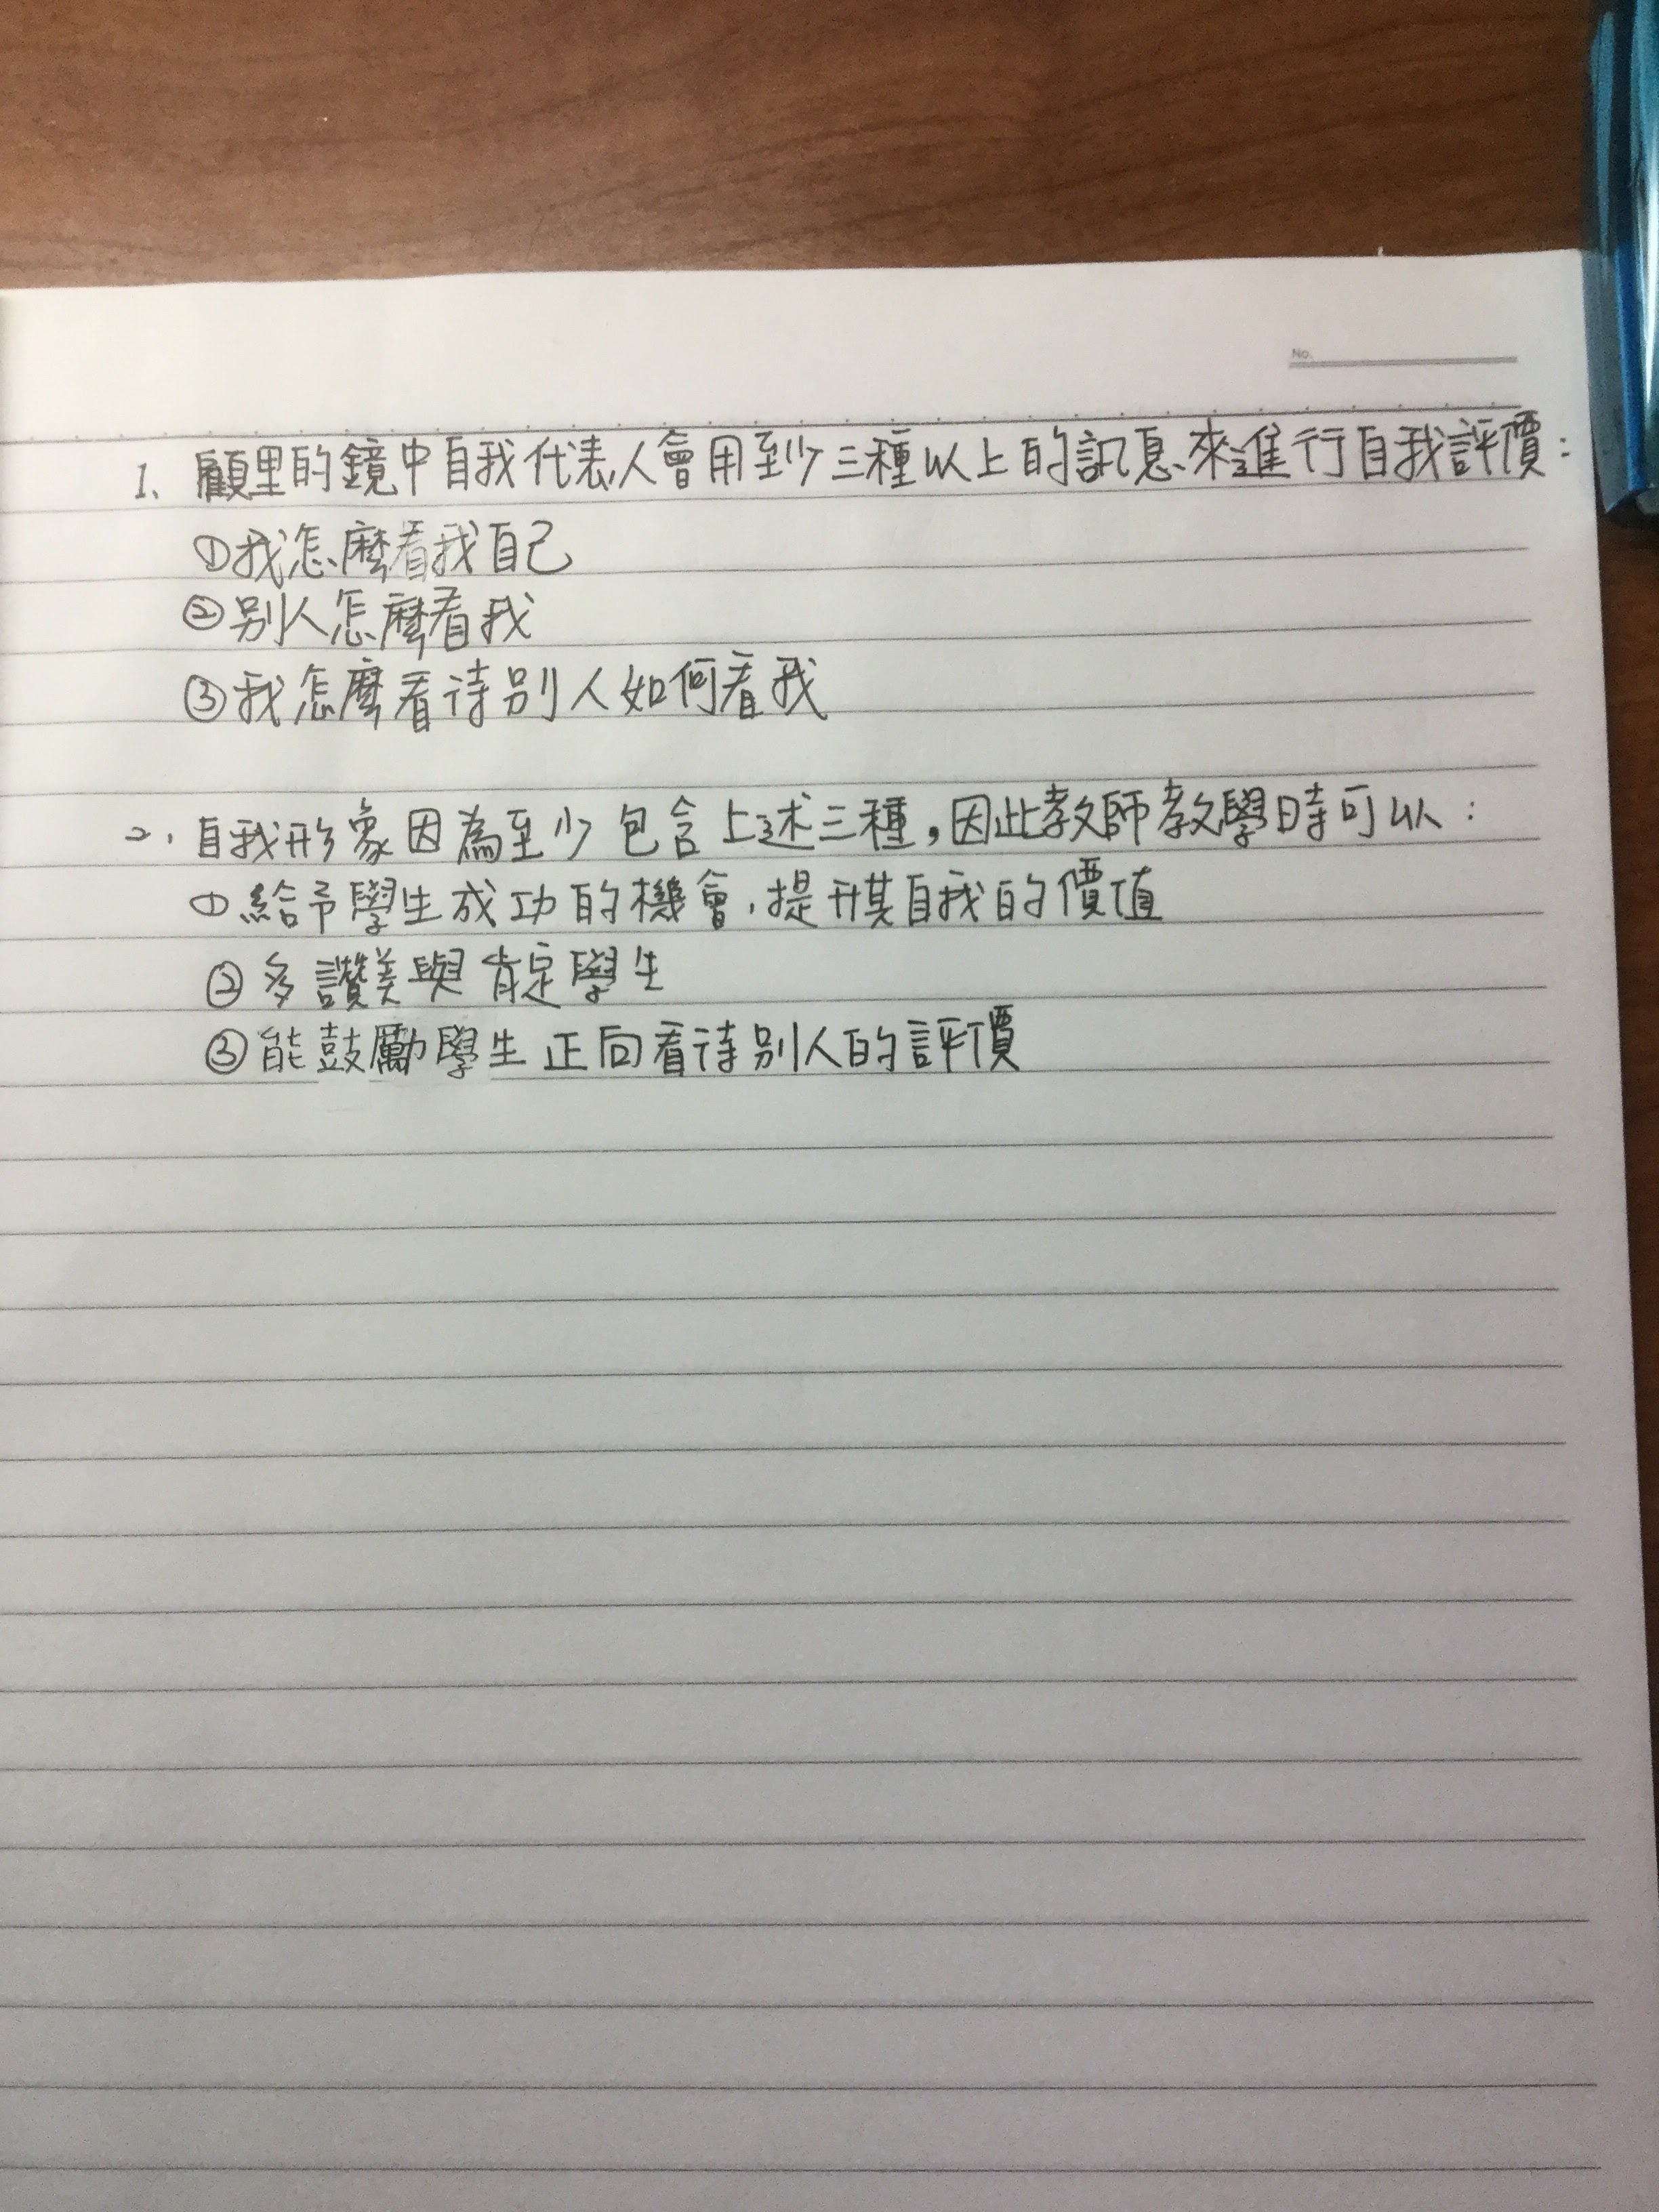 No.
1、顧里的鏡中自我代表人會用至少三種以上的訊息來進行自我評價：
①我怎麼看我自己
②別人怎麼看我
③我怎麼看待別人如何看我
2、自我形象因為至少包含上述三種，因此教師教學時可以：
①給予學生成功的機會，提升其自我的價值
②多讚美與肯定學生
③能鼓勵學生正向看待別人的評價